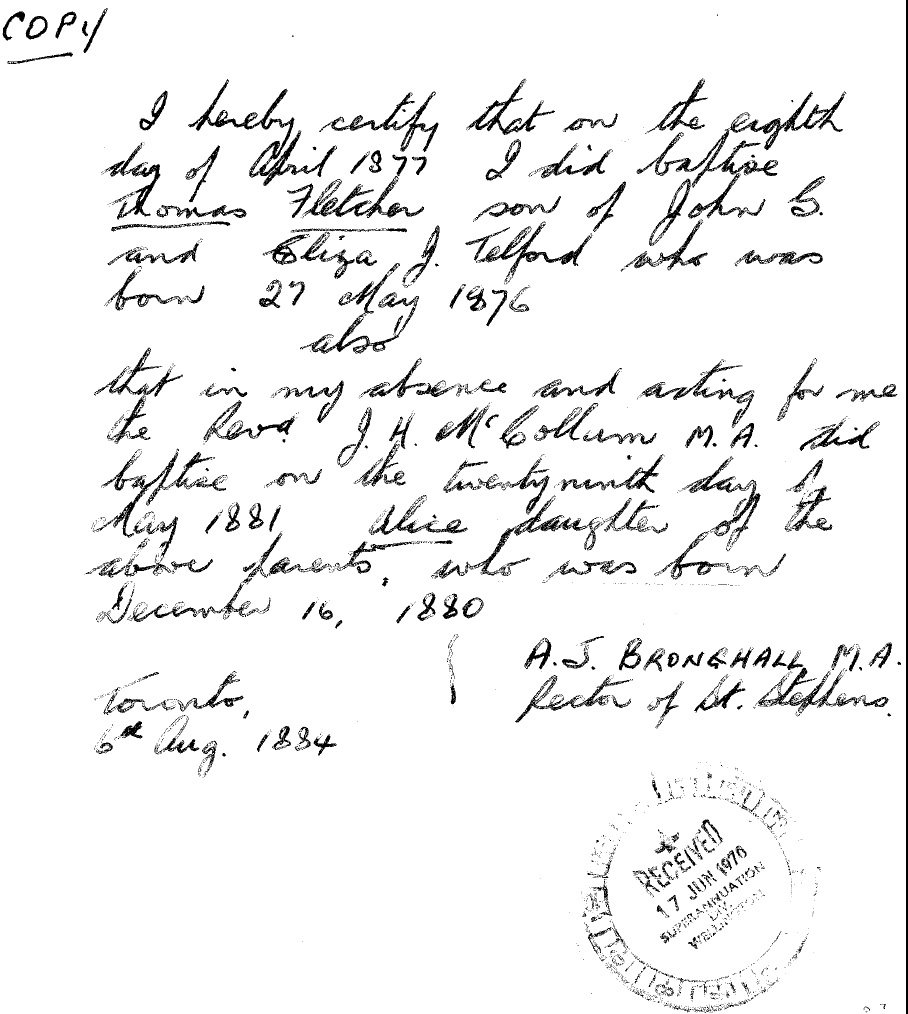 COPY
I hereby certify that on the eighth
day of April 1877 I did baptise
Thomas Fletcher son of John G.
and Eliza J. Telford who was
born 27 May 1876
also
that in my absence and acting for me
the Revd J. H. McCollum M.A. did
baptise on the twentyninth day of
May 1881 Alice daughter of the
above parents, who was born
December 16, 1880
A.J. BRONGHALL M.A.
Rector of St. Stephens.
Toronto,
6th Aug. 1884
RECEIVED
17 JUN 1976
SUPERANNUATION
DIV.
WELLINGTON